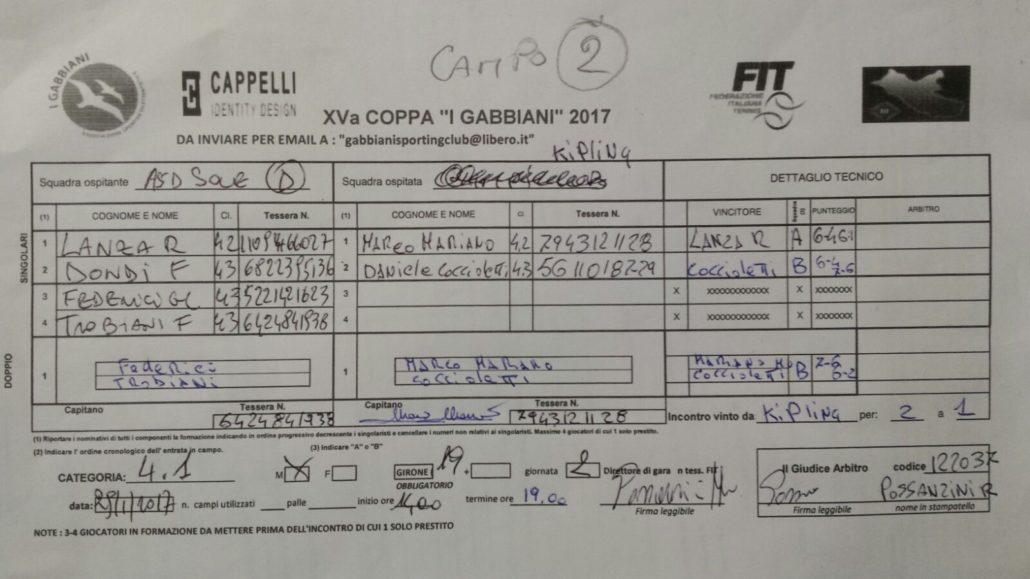 CAMPO 2
I GABBIANI
CAPPELLI
IDENTITY DESIGN
FIT
FEDERAZIONE
ITALIANA
TENNIS
XVa COPPA "I GABBIANI" 2017
DA INVIARE PER EMAIL A : "gabbianisportingclub@libero.it"
KIPLING
Squadra ospitante ASD Sole D Squadra ospitata DETTAGLIO TECNICO
(1) COGNOME E NOME Cl. Tessera N. (1) COGNOME E NOME Cl Tessera N. VINCITORE PUNTEGGIO ARBITRO
SINGOLARI
1 LANZA R 42 1 MARCO MARIANO 4.2 7943121128 LANZA R A 6-4 6-1
2 DONDI F 43 2 DANIELE COCCIOLETTI 43 5611018229 COCCIOLETTI B 6-4 7-6
3 FEDERICI GL 43 5221421623 3 X XXXXXXXXXXXX X XXXXXXX
4 TROBIANI F 43 6424841938 4 X XXXXXXXXXXXX X XXXXXXX
DOPPIO
1 Federici 1 MARCO MARIANO MARIANO M 7-6
TROBIANI COCCIOLETTI COCCIOLETTI B 6-2
Capitano Tessera N. 6424841938 Capitano Tessera N. 7943121128 Incontro vinto da KIPLING per: 2 a 1
(1) Riportare i nominativi di tutti i componenti la formazione indicando in ordine progressivo decrescente i singolaristi e cancellare i numeri non relativi ai singolaristi. Massimo 4 giocatori di cui 1 solo prestito.
(2) Indicare l' ordine cronologico dell' entrata in campo. (3) Indicare "A" o "B"
CATEGORIA: 4.1 M X F GIRONE 19 + giornata 2 Direttore di gara n tess. FIT Il Giudice Arbitro codice
OBBLIGATORIO
data: n. campi utilizzati palle inizio ore 14,00 termine ore 19,00 POSSANZINI R
Firma leggibile Firma leggibile nome in stampatello
NOTE : 3-4 GIOCATORI IN FORMAZIONE DA METTERE PRIMA DELL'INCONTRO DI CUI 1 SOLO PRESTITO